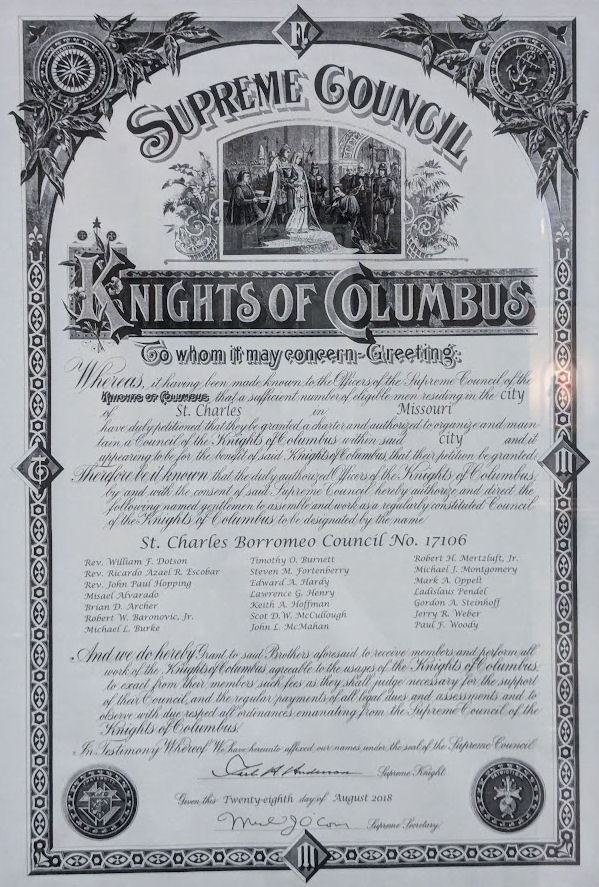 F.
SUPREME COUNCIL
KNIGHTS OF COLUMBUS
To whom it may concern-Greeting:
Whereas, it having been made known to the Officers of the Supreme Council of the
KNIGHTS OF COLUMBUS, that a sufficient number of eligible men residing in the city
of St. Charles in Missouri
have duly petitioned that they be granted a charter and authorized to organize and main
tain a Council of the Knights of Columbus within said city and it
appearing to be for the benefit of said Knights of Columbus, that their petition be granted.
Therefore be it known that the duly authorized Officers of the Knights of Columbus,
by and with the consent of said Supreme Council hereby authorize and direct the
following named gentlemen to assemble and work as a regularly constituted Council
of the Knights of Columbus to be designated by the name
St. Charles Borromeo Council No. 17106
Rev. William F. Dotson Timothy O. Burnett Robert H. Mertzluft, Jr.
Rev. Ricardo Azael R. Escobar Steven M. Fortenberry Michael J. Montgomery
Rev. John Paul Hopping Edward A. Hardy Mark A. Oppelt
Misael Alvarado Lawrence G. Henry Ladislaus Pendel
Brian D. Archer Keith A. Hoffman Gordon A. Steinhoff
Robert W. Baronovic, Jr. Scot D. W. McCullough Jerry R. Weber
Michael L. Burke John L. McMahan Paul F. Woody
And we do hereby Grant to said Brothers aforesaid to receive members and perform all
work of the Knights of Columbus agreeable to the usages of the Knights of Columbus,
to exact from their members such fees as they shall judge necessary for the support
of their Council, and the regular payments of all legal dues and assessments and to
observe with due respect all ordinances emanating from the Supreme Council of the
Knights of Columbus.
In Testimony Whereof We have hereunto affixed our names under the seal of the Supreme Council
Carl A. Anderson Supreme Knight
Given this Twenty-eighth day of August 2018
Supreme Secretary.